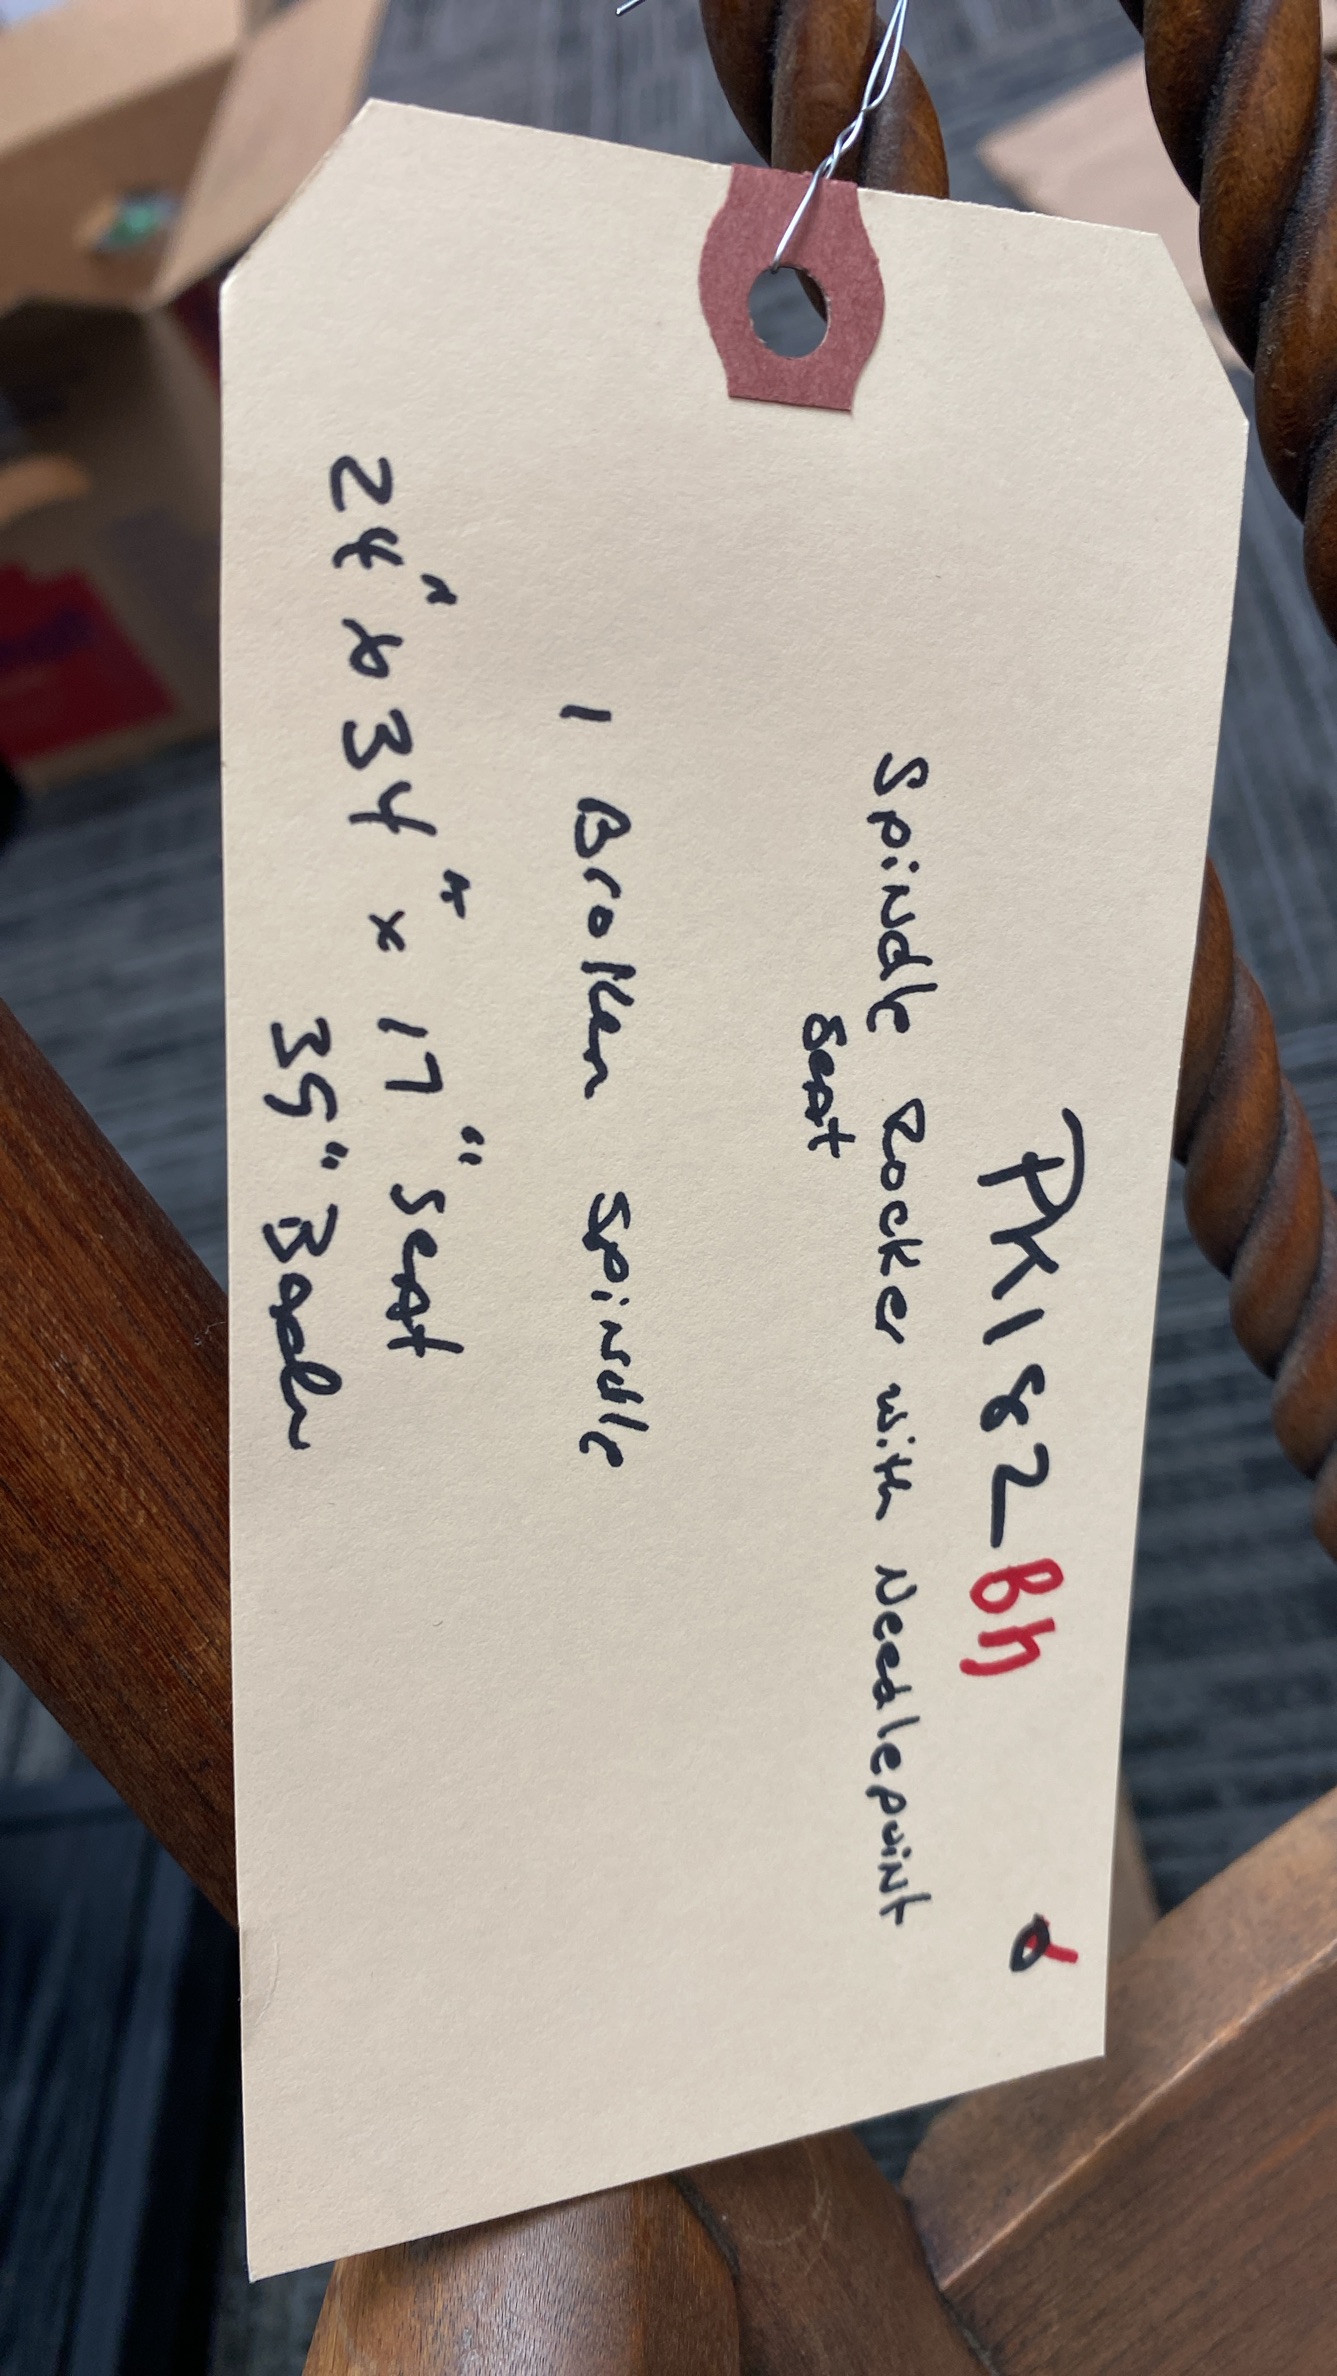 PK182 BH
Spindle Rocker with Needlepoint
Seat
1 Broken Spindle
24" x 34" x 17" Seat
35" Back